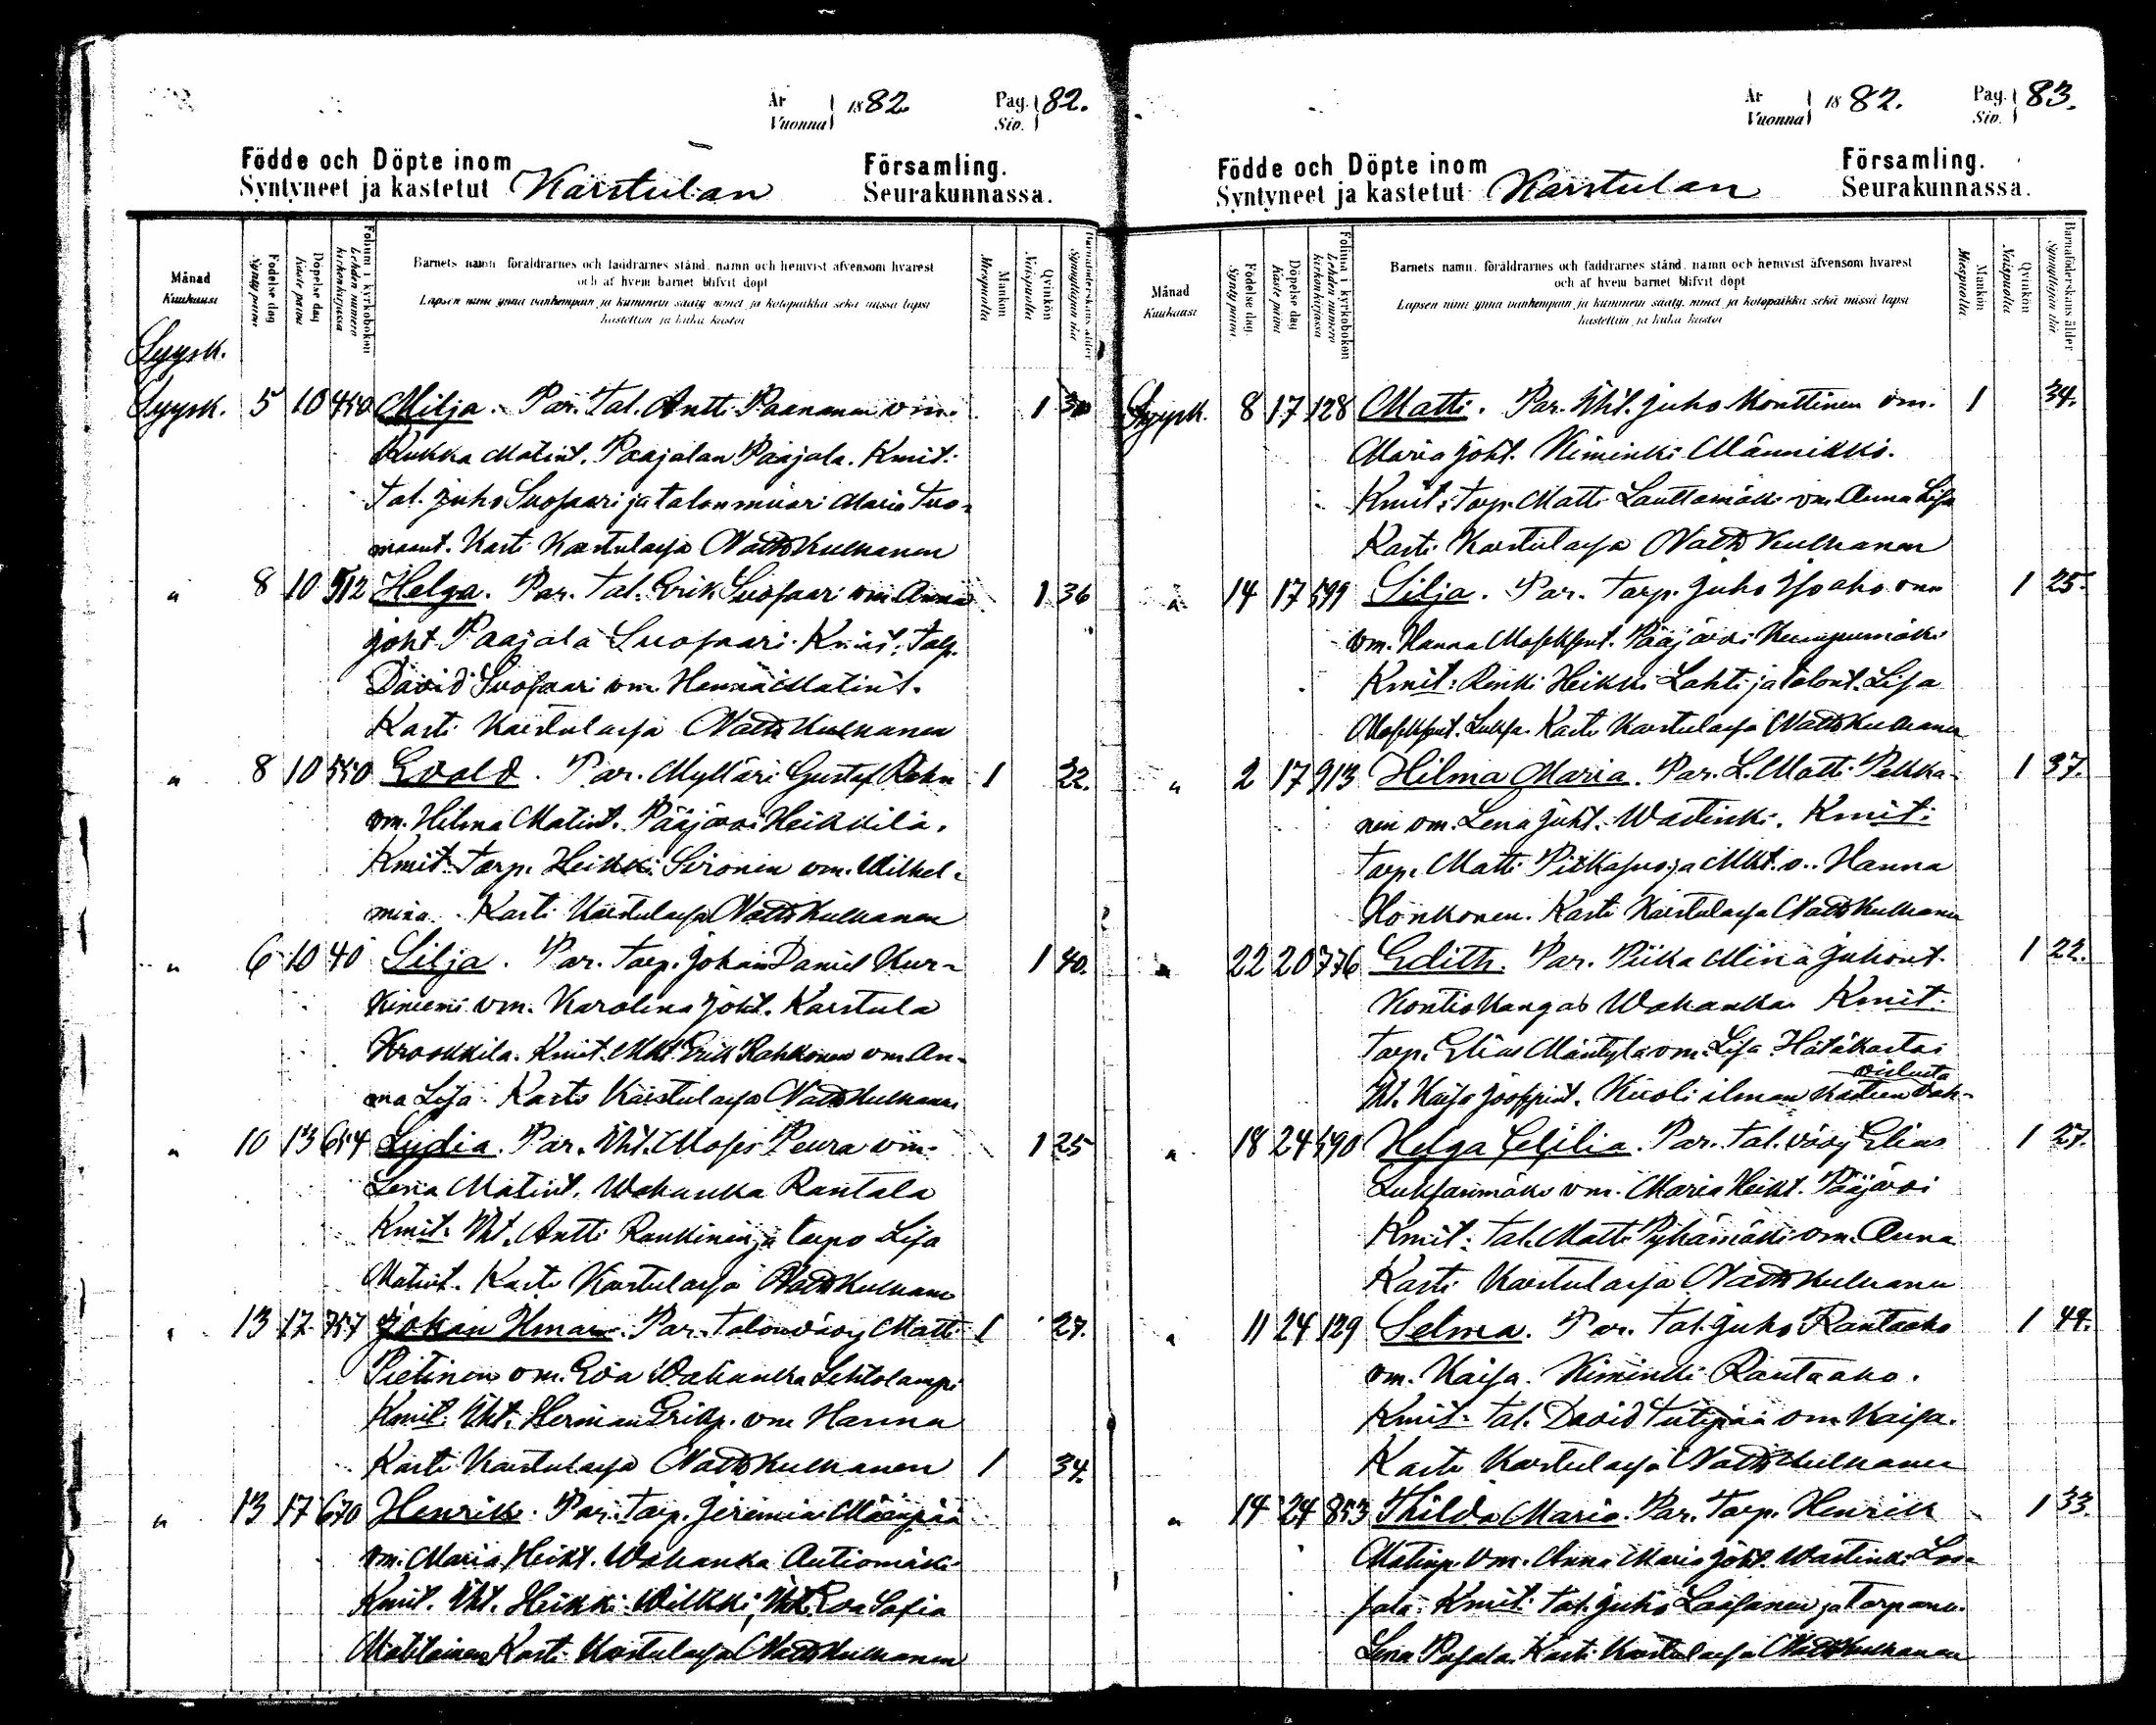 År Vuonna 1882. Pag. Siv. 82.
Födde och Döpte inom Församling.
Syntyneet ja kastetut Karstulan Seurakunnassa.
Månad Kuukausi
Födelse dag Synty päivä
Döpelse dag Kaste päivä
Folium i kyrkoboken Lehden numero kirkonkirjassa
Barnets namn, föräldrarnes och faddrarnes stånd, namn och hemvist äfvensom hvarest
och af hvem barnet blifvit döpt
Lapsen nimi ynnä vanhempain ja kummein sääty, nimet ja kotopaikka sekä missä lapsi
kastettiin ja kuka kastoi
Mankön Miespuolia
Qvinkön Naispuolia
Barnaföderskans ålder Synnyttäjän ikä
Syysk.
Syysk. 5 10 Milja. Par. Tal. Antti Paananen vm. 1 30
Kukka Matint. Paajalan Paajala. Kmit:
Tal. Juho Suojaari ja talonmuori Maria Tuo-
maant. Kasti Karstulassa Matts Kulhanen
" 8 10 512 Helga. Par. Tal. Erik Suojaari vm. Anna 1 36
Joht Paajala Suojaari. Kmit: Talp.
David Suojaari vm. Henna Matint.
Kasti Karstulassa Matts Kulhanen
" 8 10 550 Evald. Par. Mylläri Gustaf Rahn 1 22.
vm. Hilma Matint. Pääjärvi Heikkilä.
Kmit: Torp. Heikki Sironen vm. Wilhel-
mina. Kasti Karstulassa Matts Kulhanen
" 6 10 40 Silja. Par. Torp. Johan Daniel Kur- 1 40.
kiniemi vm. Karolina Joht. Karstula
Krookkila. Kmit. Mkt. Erik Rahkonen vm. An-
na Lisa. Kasti Karstulassa Matts Kulhanen
" 10 13 654 Lydia. Par. Iht. Moses Peura vm. 1 25
Lena Matint. Wahanka Rantala
Kmit. Iht. Antti Rankinen ja torpo Lisa
Matint. Kasti Karstulassa Matts Kulhanen
" 13 17 757 Johan Ilmar. Par. Talonvävy Matti 1 27.
Pietinen vm. Eva Wahanka Lehtolampi
Kmit. Iht. Herman Erikp. vm Hanna
Kasti Karstulassa Matts Kulhanen 1 34.
" 13 17 670 Henrik. Par. Torp. Jeremias Mäenpää
vm. Maria Heikt. Wahanka Autiomäki
Kmit. Iht. Heikki Wilkki, Iht. Eva Sofia
Matilainen Kasti Karstulassa Matts Kulhanen
År Vuonna 1882. Pag. Siv. 83.
Födde och Döpte inom Församling.
Syntyneet ja kastetut Karstulan Seurakunnassa.
Månad Kuukausi
Födelse dag. Synty päivä
Döpelse dag Kaste päivä
Folium i kyrkoboken Lehden numero kirkonkirjassa
Barnets namn, föräldrarnes och faddrarnes stånd, namn och hemvist äfvensom hvarest
och af hvem barnet blifvit döpt
Lapsen nimi ynnä vanhempain ja kummein sääty, nimet ja kotopaikka sekä missä lapsi
kastettiin ja kuka kastoi
Mankön Miespuolia
Qvinkön Naispuolia
Barnaföderskans ålder Synnyttäjän ikä
Syysk. 8 17 128 Matti. Par. Iht. Juho Monttinen vm. 1 34.
Maria Joht. Kiminki Männikkö.
Kmit: Torp. Matti Lauttamäki vm. Anna Lisa
Kasti Karstulassa Matts Kulhanen
" 14 17 599 Silja. Par. Torp. Juho Isoaho 1 25.
vm. Hanna Pääjärvi Kumpumäki
Kmit: Renki Heikki Lahti ja talont. Lisa
Kasti Karstulassa Matts Kulhanen
" 2 17 913 Hilma Maria. Par. L. Matti Pekka- 1 37.
nen vm. Lena Juht. Wastinki. Kmit:
Torp. Matti Pitkäsuo ja Mkt. v. Hanna
Hönkonen. Kasti Karstulassa Matts Kulhanen
" 22 20 776 Edith. Par. Piika Mina Juhont. 1 22.
Kontiokangas Wahanka. Kmit.
Torp. Elias Mäntylä vm. Lisa. Hätäkastoi
Kaisa Joosepint. Kuoli ilman kasteen vah-
vistusta
" 18 24 590 Helga Cesilia. Par. Tal. vävy Elias 1 27.
Luksanmäki vm. Maria Heikt. Pääjärvi
Kmit: Tal. Matti Pyhämäki vm. Anna
Kasti Karstulassa Matts Kulhanen
" 11 24 129 Selma. Par. Tal. Juho Rantaaho 1 44.
vm. Kaisa. Kiminki Rantaaho.
Kmit: Tal. David Tutipää vm Kaisa.
Kasti Karstulassa Matts Kulhanen
" 14 24 853 Thilda Maria. Par. Torp. Henrik 1 33.
Matinp. vm. Anna Maria Joht. Wastinki
Kmit: Tal. Juho Laasanen ja torparin
Lena Pasala. Kasti Karstulassa Matts Kulhanen